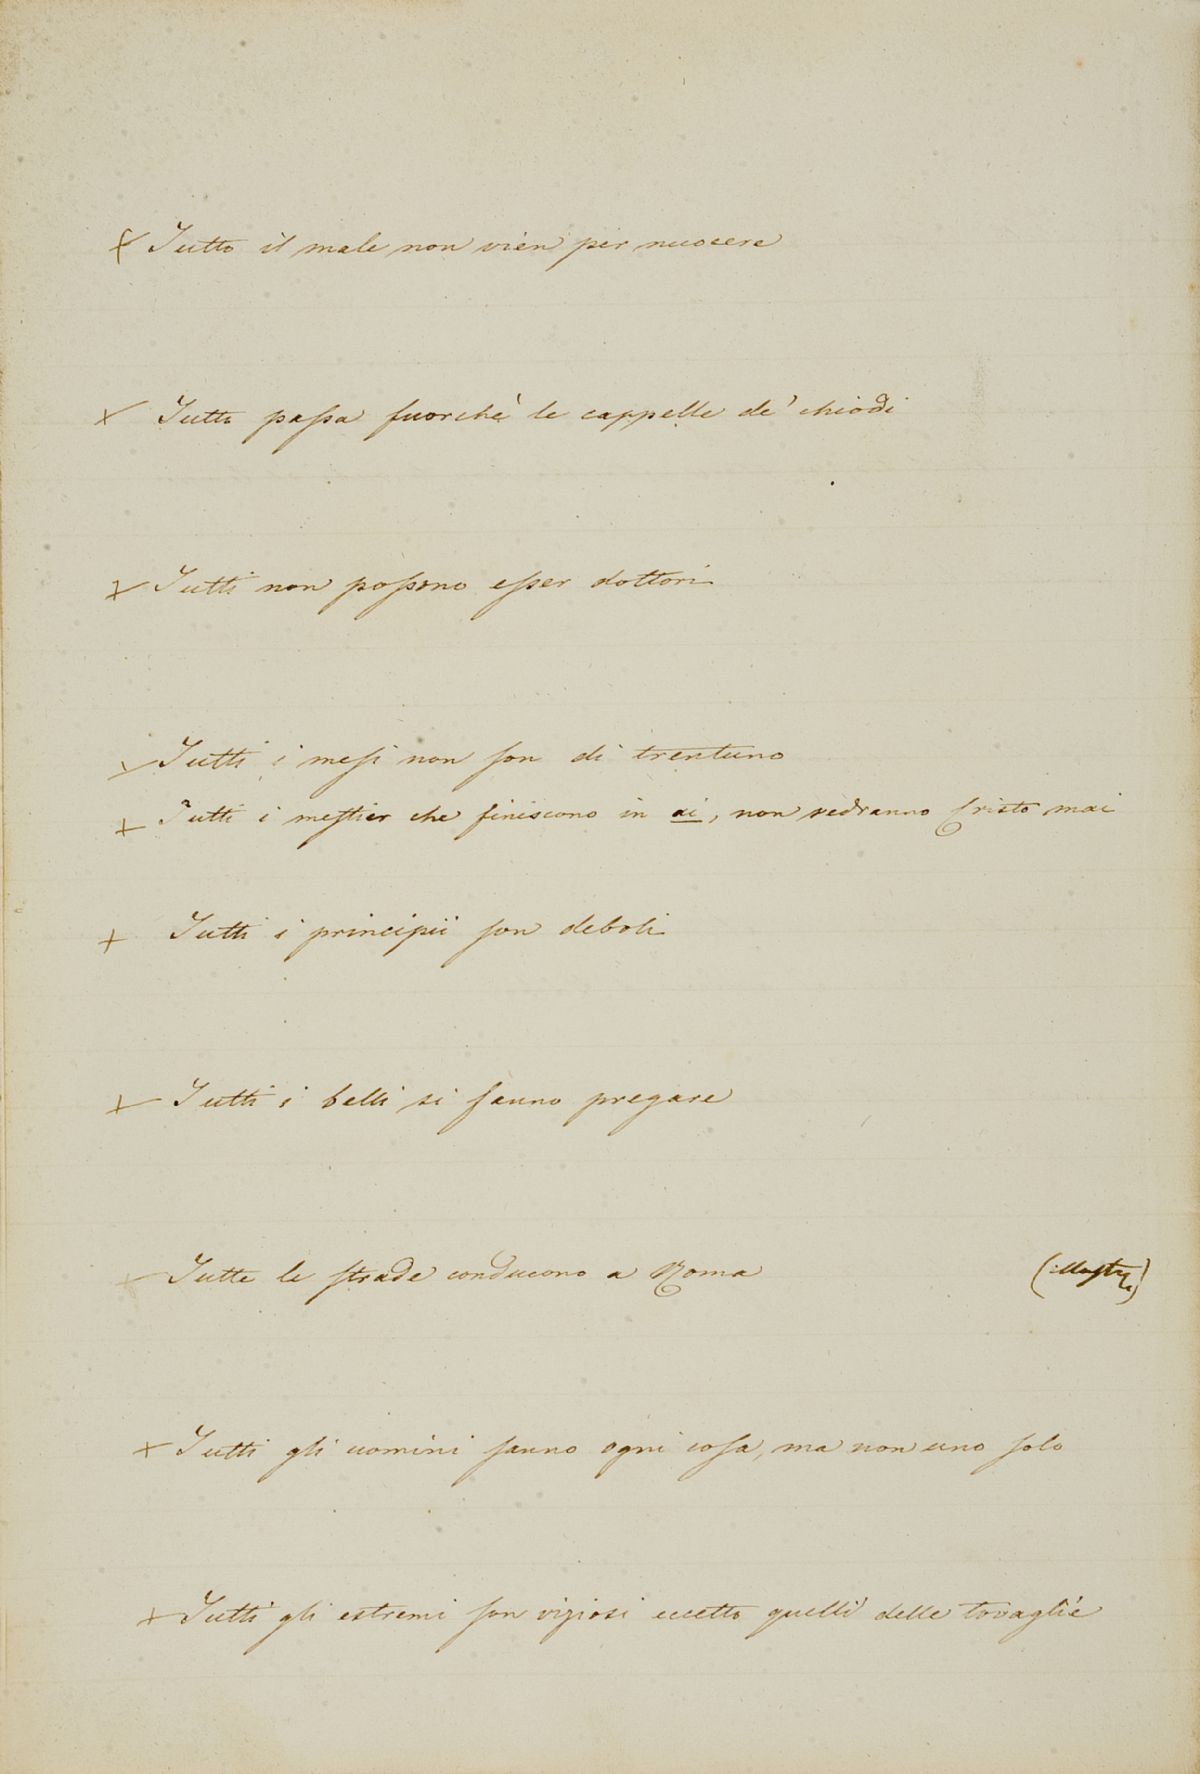 Tutto il male non vien per nuocere
Tutto passa fuorchè le cappelle de' chiodi
Tutti non possono esser dottori
Tutti i mesi non son di trentuno
Tutti i mestier che finiscono in ai, non vedranno Cristo mai
Tutti i principii son deboli
Tutti i belli si fanno pregare
Tutte le strade conducono a Roma
Tutti gli uomini sanno ogni cosa, ma non uno solo
Tutti gli estremi son viziosi eccetto quelli delle tovaglie